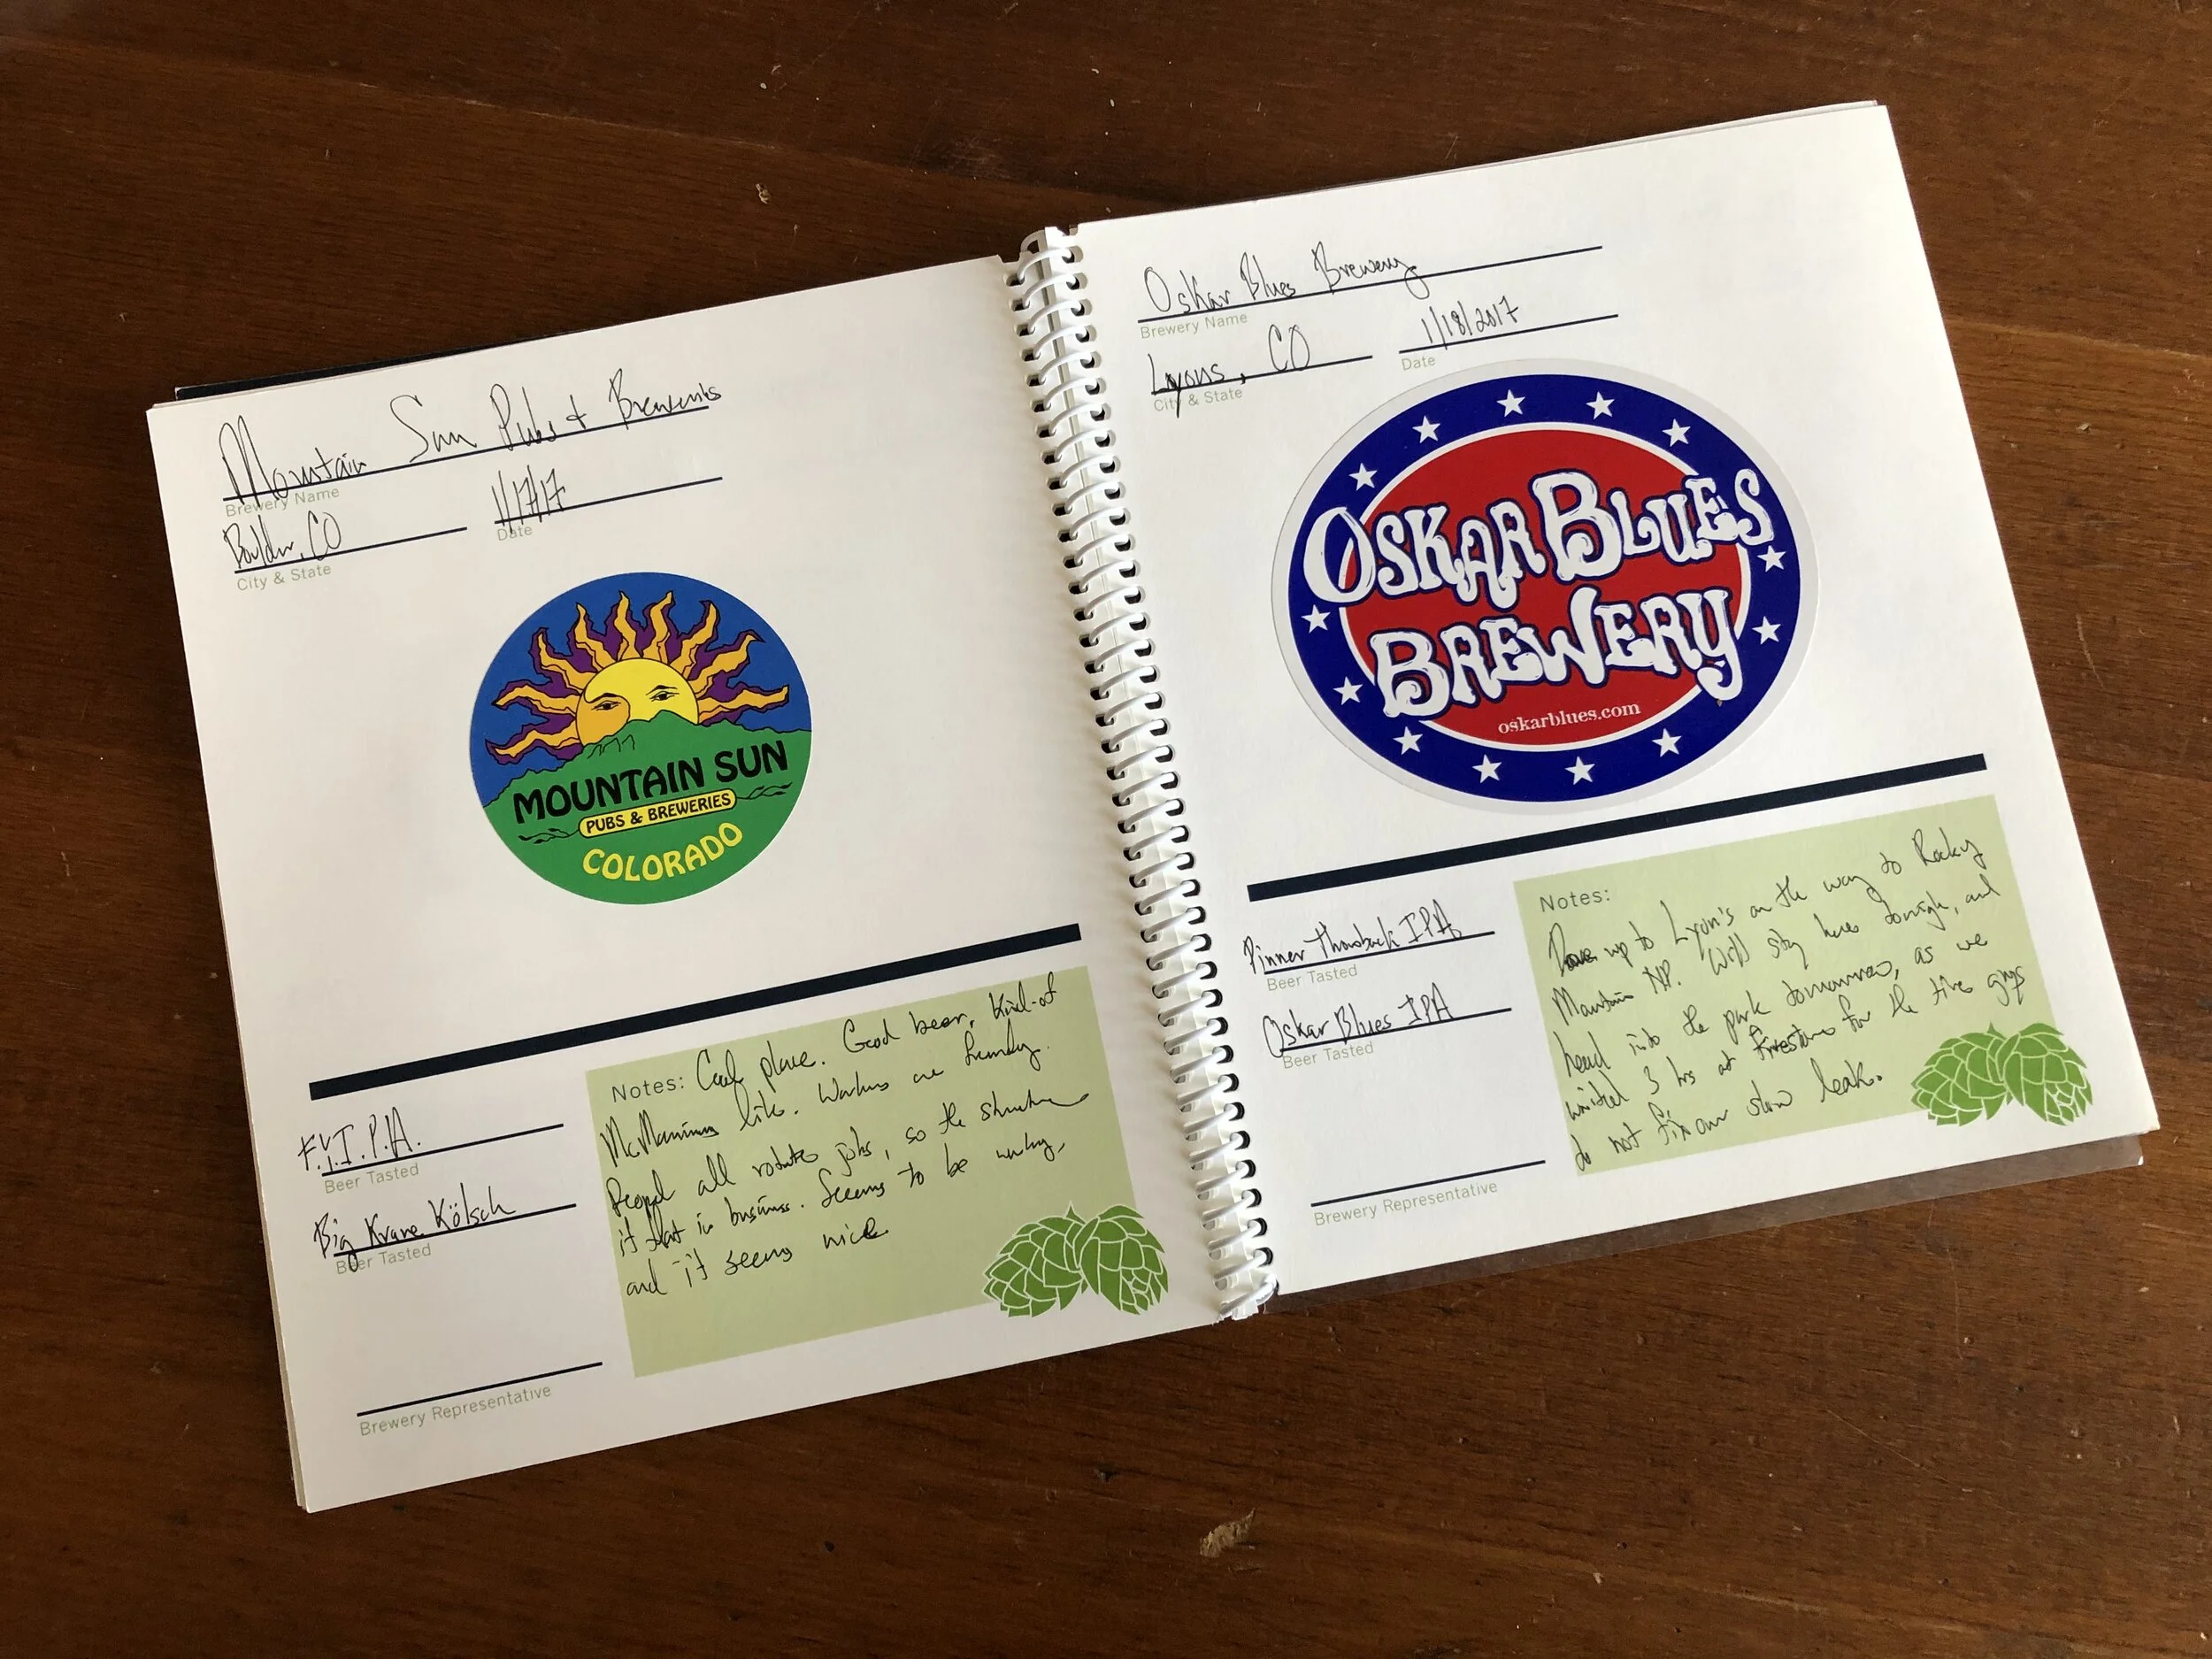 Mountain Sun Pubs & Breweries
Brewery Name
Boulder, CO
1/17/17
City & State
Date
MOUNTAIN SUN
PUBS & BREWERIES
COLORADO
F.Y.I.P.A.
Beer Tasted
Big Krane Kölsch
Beer Tasted
Brewery Representative
Notes: Cool place. Good beer. Kind-of
McManinns like. Workers are friendly.
People all rotate jobs, so the structure
if that in business. Seems to be working,
and it seems nice
Oskar Blues Brewery
Brewery Name
Lyons, CO
1/18/2017
City & State
Date
OSKAR BLUES
BREWERY
oskarblues.com
Pinner Throwback IPA
Beer Tasted
Oskar Blues IPA
Beer Tasted
Brewery Representative
Notes:
Drove up to Lyon's on the way to Rocky
Mountain NP. Will stay here tonigh, and
head into the park tomorrow, as we
waited 3 hrs at Firestone for the tire guys
to not fix our slow leak.